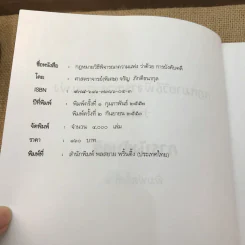 ชื่อหนังสือ : กฎหมายวิธีพิจารณาความแพ่ง ว่าด้วย การบังคับคดี
โดย : ศาสตราจารย์พิเศษ จรัญ ภักดีธนากุล
ISBN :
ปีที่พิมพ์ : พิมพ์ครั้งที่ ๑ กุมภาพันธ์
พิมพ์ครั้งที่ ๒ กันยายน
จัดพิมพ์ : จำนวน ๔,๐๐๐ เล่ม
ราคา : บาท
พิมพ์ที่ : สำนักพิมพ์ พลสยาม พริ้นติ้ง (ประเทศไทย)